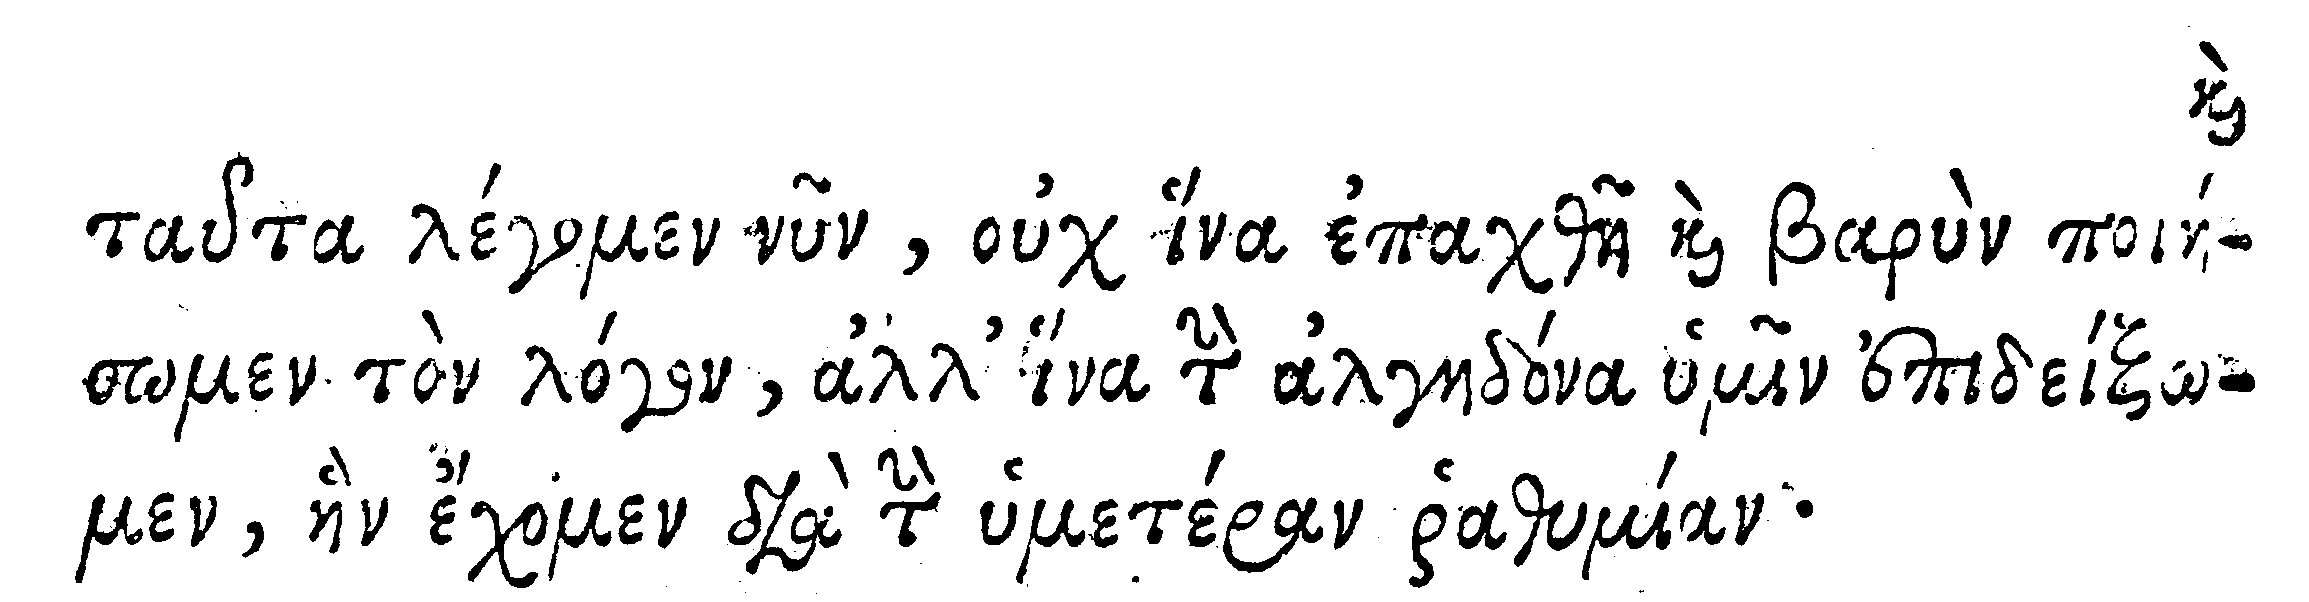 καὶ
ταῦτα λέγομεν νῦν, οὐχ ἵνα ἐπαχθῆ καὶ βαρὺν ποιή-
σωμεν τὸν λόγον, ἀλλ' ἵνα τὴν ἀλγηδόνα ὑμῖν ἐπιδείξω-
μεν, ἣν ἔχομεν διὰ τὴν ὑμετέραν ῥαθυμίαν.